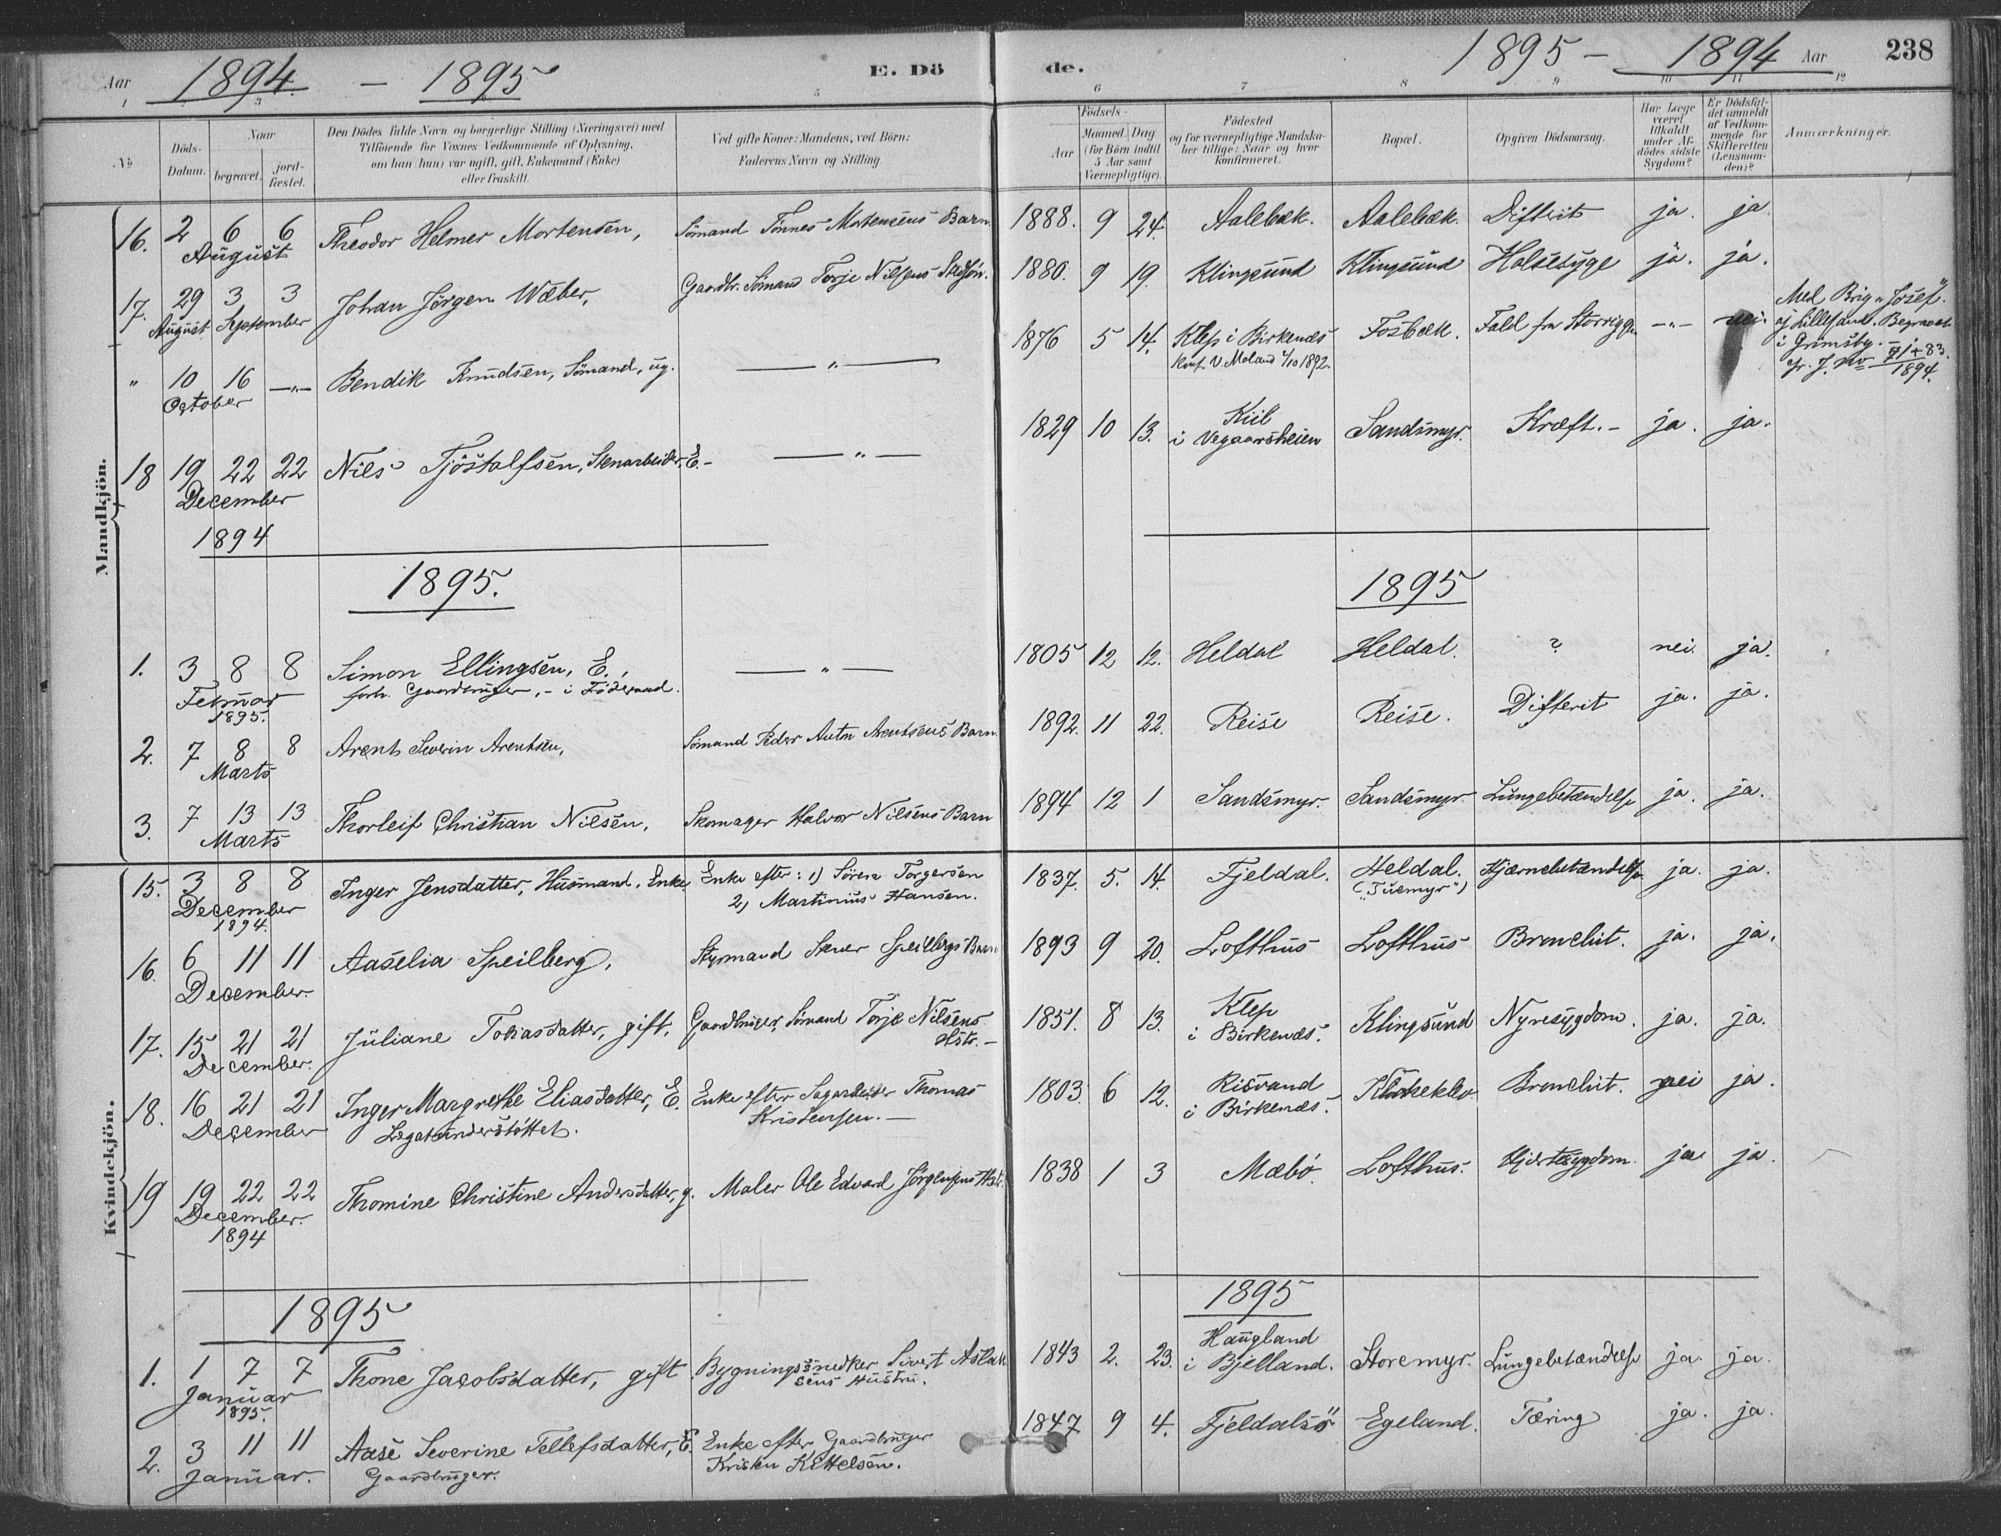 Aar 1894 — 1895 E. Dö
de. 1895 — 1894 Aar 238
1 3 5 6 7 8 9 10 11 12
No
Döds-Datum.
Naar
begravet.
jord-fæstet.
Den Dödes fulde Navn og borgerlige Stilling (Næringsvei) med
Tilföiende for Voxnes Vedkommende af Oplysning,
om han (hun) var ugift, gift, Enkemand (Enke)
eller fraskilt.
Ved gifte Koner: Mandens, ved Börn:
Faderens Navn og Stilling
Födsels-
Aar
Maaned. Dag
(for Börn indtil
5 Aar samt
Værnepligtige).
Födested
og for værnepligtige Mandska-
ber tillige: Naar og hvor
konfirmeret.
Bopæl.
Opgiven Dödsaarsag.
Har Læge
været
tilkaldt
under Af-
dödes sidste
Sygdom?
Er Dödsfal-
det anmeldt
af Vedkom-
mende for
Skifteretten
(Lensman-
den)?
Anmærkninger.
Mandkjön.
16. 2 6 6 August Theodor Helmer Mortensen, Sömand Tönnes Mortensens Barn 1888. 9 24. Aalebæk. Aalebæk. Difterit ja. ja
17. 29 August 3 3 September Johan Jörgen Wæber, Gaardbr. Sömand Torje Nilsens Stedsön. 1880. 9 19. Klingsund Klingsund Halsesyge ja. ja.
" 10 16 —"— October Bendik Knudsen, Sömand, ug. —"— 1876 5 14. Klep i Birkenæs
Konf. V. Moland 2/10 1892.
Fosbæk. Fald fra Storrigge —"— nei.
Med Brig "Josef"
af Lillesand. Begravet
i Grimsby. —
cfr. J. No 71+83
1894.
18 19 22 22 December Nils Tjöstalfsen, Stenarbeider, E. —"— 1829 10 13. Kiil
i Vegaarsheien Sandsmyr. Kræft. — ja. ja.
1894
1895. 1895
1. 3 8 8 Februar 1895. Simon Ellingsen, E.,
forh. Gaardbruger, - i Föderaad. —"— 1805 12 12. Heldal Heldal. ? nei. ja.
2. 7 8 8 Marts Arent Severin Arentsen, Sömand Peder Anton Arentsens Barn 1892. 11 22. Reise Reise. Difterit ja. ja.
3. 7 13 13 Marts Thorleif Christian Nilsen, Skomager Halvor Nilsens Barn 1894 12 1 Sandsmyr. Sandsmyr. Lungebetændelse ja. ja.
Kvindekjön.
15. 3 8 8 December 1894. Inger Jensdatter, Husmand. Enke Enke efter: 1) Sören Torgersen
2) Martinius Hansen. 1837. 5. 14. Fjeldal. Heldal.
("Tuemyr") Hjærnebetændelse ja. ja.
16. 6 11 11 December. Aaselia Speilberg, Styrmand Speilbergs Barn 1893 9 20. Lofthus Lofthus Bronchit. ja. ja.
17. 15 21 21 December. Juliane Tobiasdatter, gift, Gaardbruger, Sömand Torje Nilsens
Hstr. — 1851. 8 13. Klep
i Birkenæs. Klingsund Nyresygdom. ja. ja.
18. 16 21 21 December Inger Margrethe Eliasdatter, E.
Legatunderstöttet. Enke efter Sagarbeider Thomas
Kristensen. — 1803. 6 12. Risvand
i Birkenæs. Bronchit. nei ja.
19 19 22 22 December. 1894 Thomine Christine Andersdatter, g. Maler Ole Edvard Jörgensens Hstr. 1838 1 3 Mæbö. Lofthus. Hjertesygdom. ja ja.
1895 1895
1. 1 7 7 Januar 1895. Thone Jacobsdatter, gift Bygningssnedker Sivert Aslak-
sens Hustru. 1843 2. 23. Haugland
i Bjelland. Storemyr. Lungebetændelse ja. ja.
2. 3 11 11 Januar. Aase Severine Tellefsdatter, E.
Gaardbruger. Enke efter Gaardbruger
Kristen Kittelsen. 1847 9 4. Fjeldalsö Egeland. Tæring ja. ja.